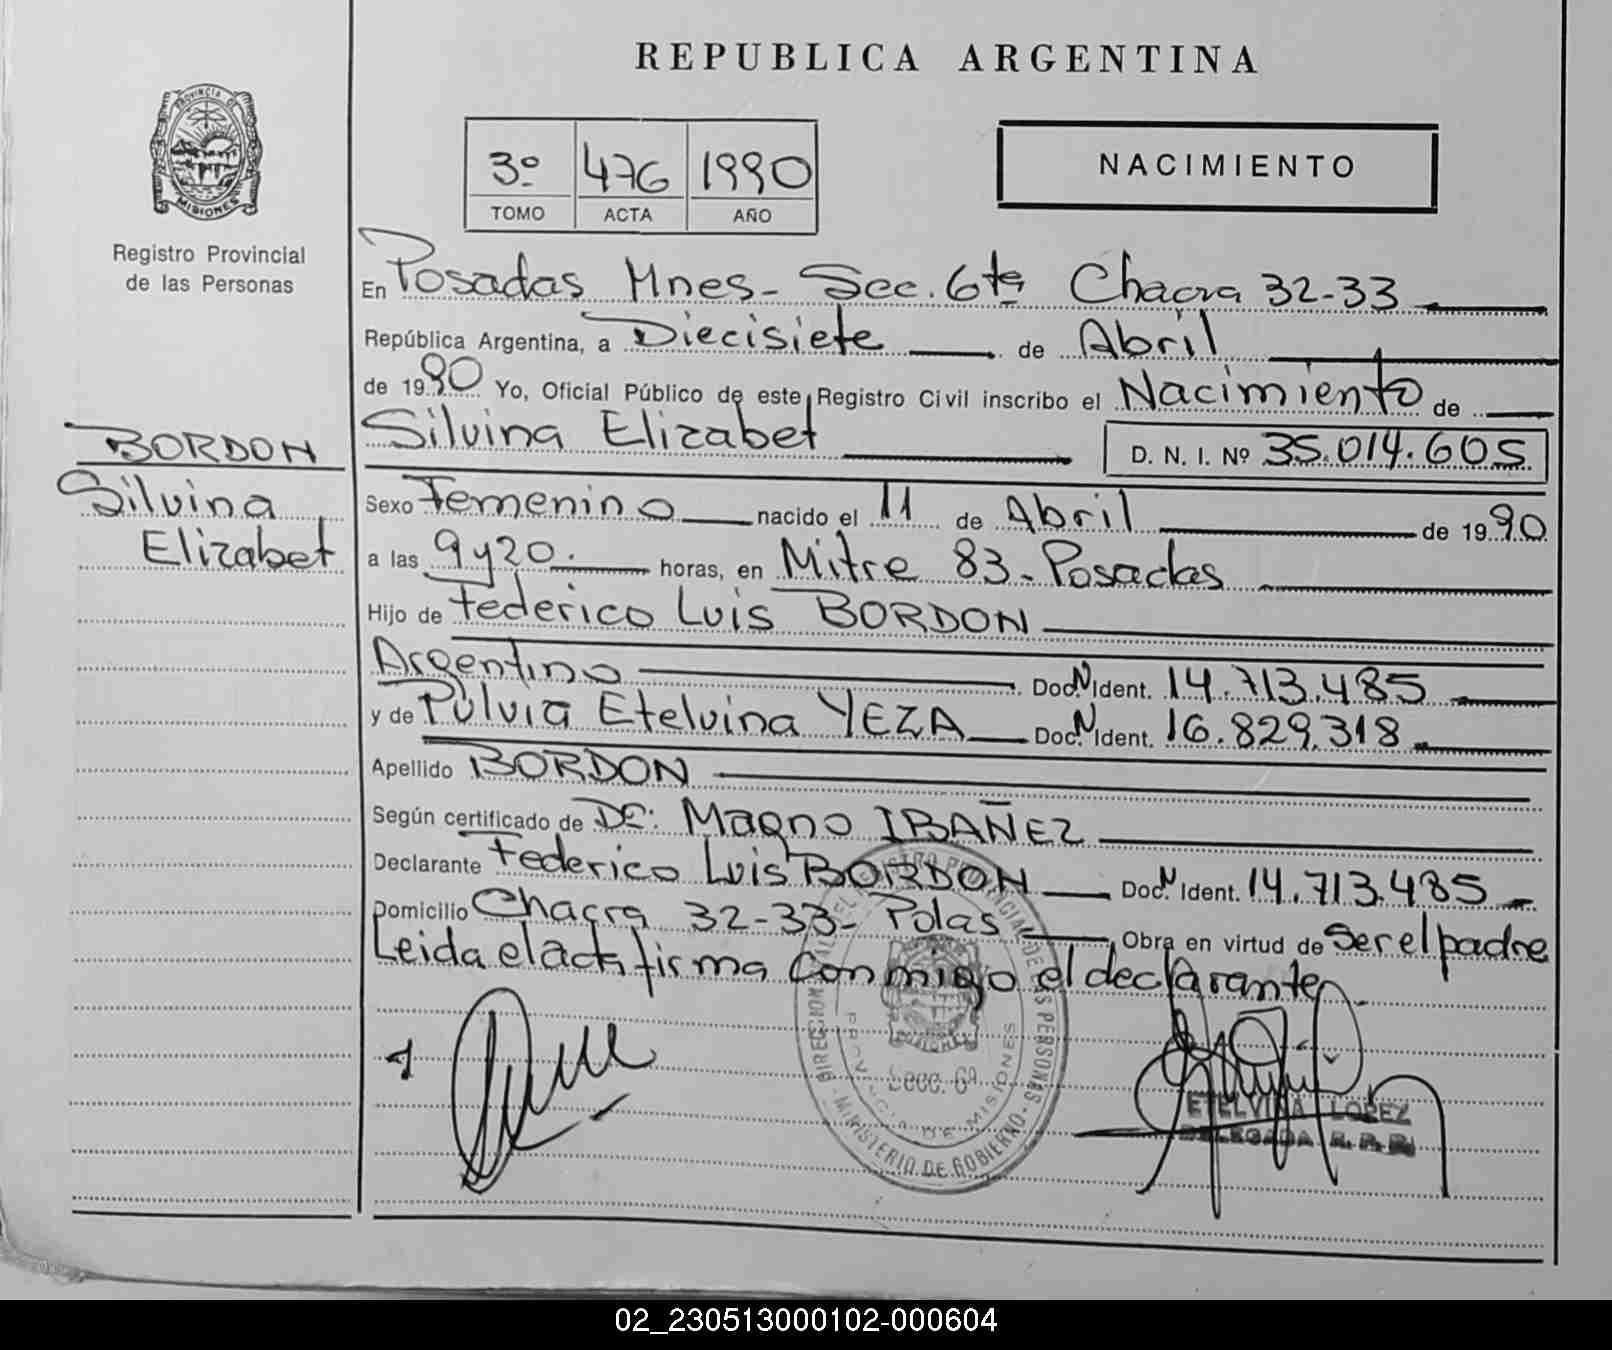 REPUBLICA ARGENTINA
PROVINCIA DE MISIONES
Registro Provincial
de las Personas
3º 476 1990
TOMO ACTA AÑO
NACIMIENTO
En Posadas Mnes- Sec. 6ta Chacra 32-33
República Argentina, a Diecisiete de Abril
de 1990 Yo, Oficial Público de este Registro Civil inscribo el Nacimiento de
Silvina Elizabet D. N. I. Nº 35.014.605
BORDON
Silvina
Elizabet
Sexo Femenino nacido el 11 de Abril de 1990
a las 9y20. horas, en Mitre 83-Posadas
Hijo de Federico Luis BORDON
Argentino Doc. N Ident. 14.713.485
y de Fulvia Etelvina YEZA Doc. N Ident. 16.829.318
Apellido BORDON
Según certificado de Dr: Magno IBAÑEZ
Declarante Federico Luis BORDON Doc. N Ident. 14.713.485
Domicilio Chacra 32-33- Pdas Obra en virtud de Ser el padre
Leida el acta firma conmigo el declarante
DIRECCION GRAL. DEL REGISTRO PROVINCIAL DE LAS PERSONAS - MINISTERIO DE GOBIERNO -
PROVINCIA DE MISIONES
Secc. 6ª
ETELVINA LOPEZ
DELEGADA R. P. P.
02_230513000102-000604